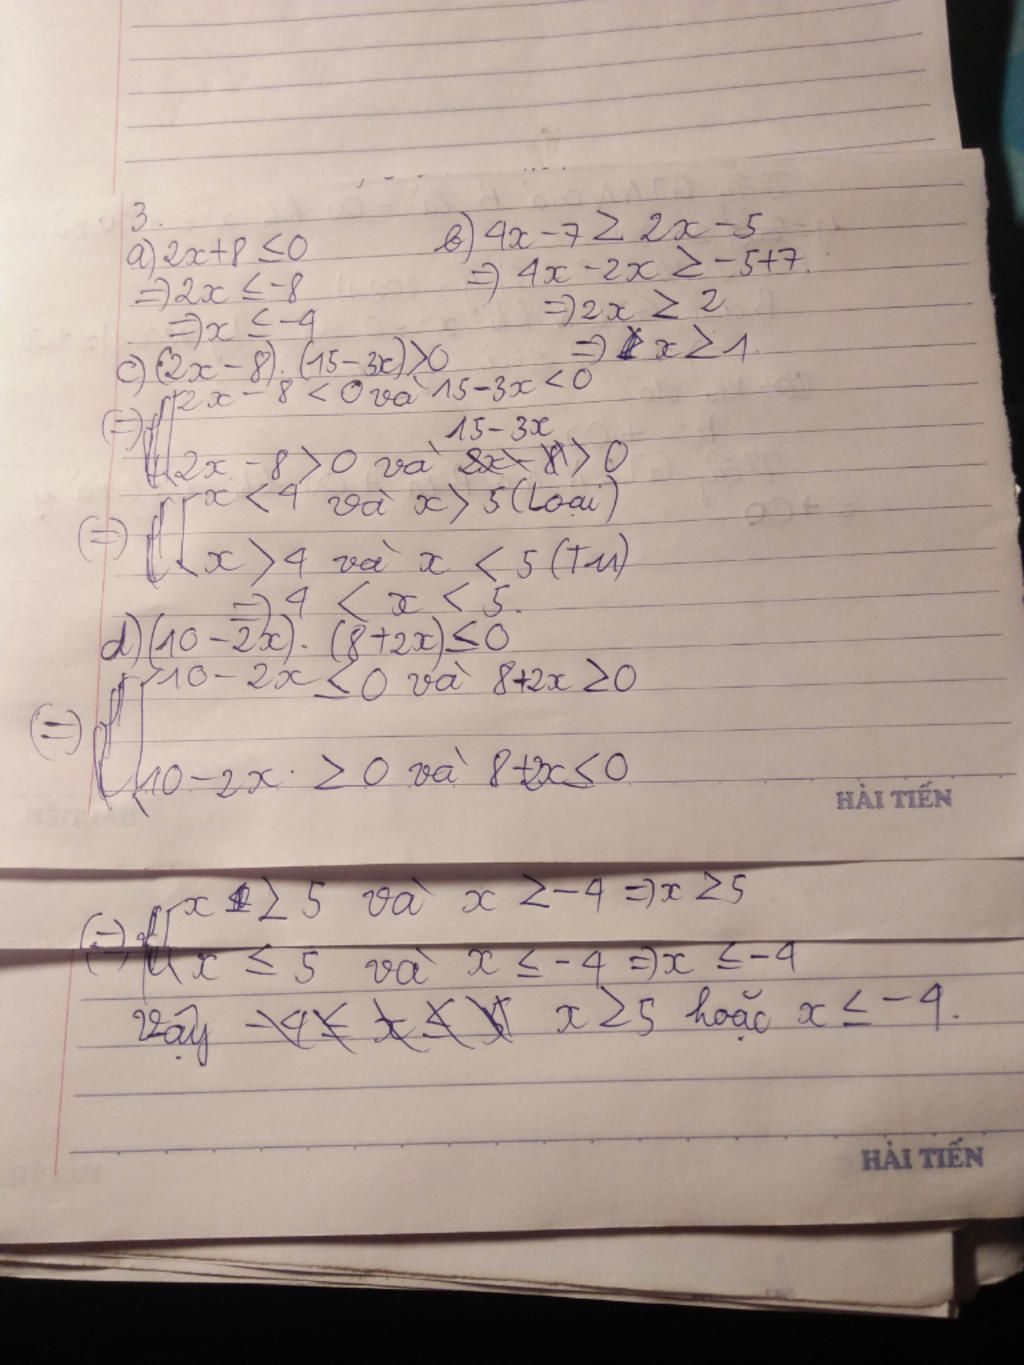 3.
a) 2x+8 ≤ 0
⇒ 2x ≤ -8
⇒ x ≤ -4
b) 4x-7 ≥ 2x-5
⇒ 4x-2x ≥ -5+7.
⇒ 2x ≥ 2
⇒ x ≥ 1.
c) (2x-8).(15-3x)>0
(=) 2x-8 < 0 và 15-3x < 0
15-3x
2x-8 > 0 và 2x-8 > 0
(=) x < 4 và x > 5 (Loại)
x > 4 và x < 5 (TM)
⇒ 4 < x < 5.
d) (10-2x).(8+2x) ≤ 0
(=) 10-2x ≤ 0 và 8+2x ≥ 0
10-2x ≥ 0 và 8+2x ≤ 0
HẢI TIẾN
(=) x ≥ 5 và x ≥ -4 ⇒ x ≥ 5
x ≤ 5 và x ≤ -4 ⇒ x ≤ -4
Vậy -4 ≤ x ≤ 5 x ≥ 5 hoặc x ≤ -4.
HẢI TIẾN